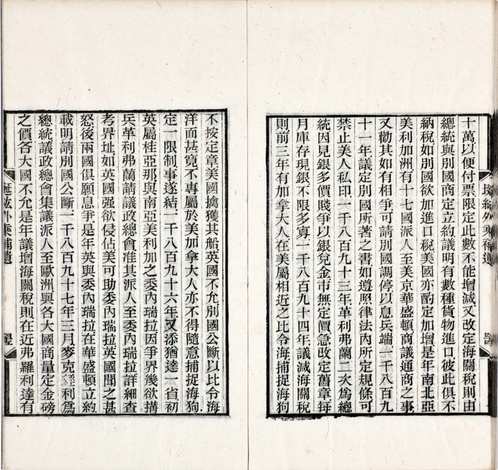 十萬以便付票限定此數不能增減又改定海關稅則由
總統與別國商定立約議明有數種貨物進口彼此俱不
納稅如別國欲加進口稅美國亦酌定加增是年南北亞
美利加洲有十七大國派人至美京華盛頓商議通商之事
又勸其如有相爭可請別國調停以息兵端一千八百九
十一年議定別國所著之書如遵照律法內所定規條可
禁止美人私印一千八百九十三年革利弗蘭二次爲總
統因見銀多價賤以銀兌金市無定價急改定舊章每
月庫存現銀不限定多少一千八百九十四年議減海關稅
則前三年有加拿大人在美屬相近之比令海捕捉海狗
不按定章美國擒獲其船英國不允別國公斷以比令海
洋而甚寬不專屬於美加拿大人亦不得隨意捕捉海狗
定一限制事遂結一千八百九十六年又添猶達一省初
英屬桂亞那與南亞美利加之委內瑞拉因爭界幾欲搆
兵革利弗蘭請議政總會准其派人至委內瑞拉詳細查
考界址如英國強欲侵佔美可助委內瑞拉英國聞之甚
怒後兩國俱願息爭是年英與委內瑞拉在華盛頓立約
載明請別國公斷一千八百九十七年三月麥克堅利爲
總統議政總會集議派人至歐洲與各大國商量定金磅
之價各大國不允是年議增海關稅則在近弗羅利達有